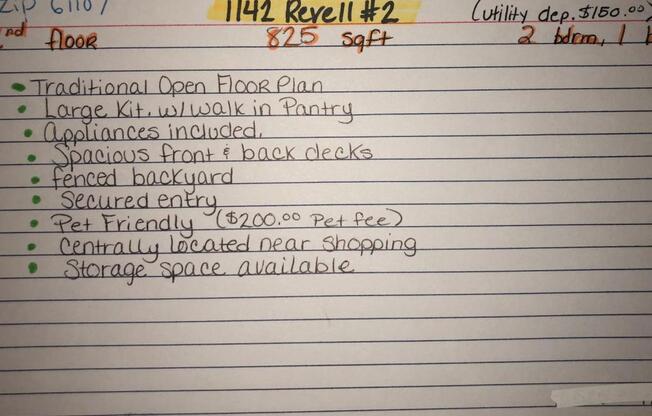 Zip 61107 1142 Revell #2 (utility dep. $150.00)
nd floor 825 sqft 2 bdrm, 1 b
• Traditional Open Floor Plan
• Large Kit. w/ walk in Pantry
• Appliances included.
• Spacious front & back decks
• fenced backyard
• Secured entry
• Pet Friendly ($200.00 Pet fee)
• Centrally located near shopping
• Storage space available